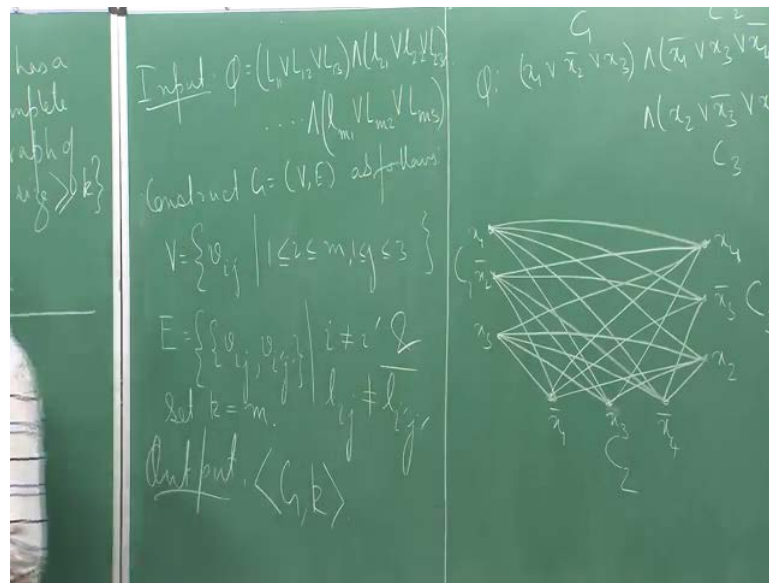 has a
mplete
raph of
size ≥ k}
Input: φ = (L₁₁ ∨ L₁₂ ∨ L₁₃) ∧ (l₂₁ ∨ L₂₂ ∨ L₂₃)
.... ∧ (l_{m1} ∨ L_{m2} ∨ L_{m3})
Construct G = (V, E) as follows:
V = {v_{ij} | 1 ≤ i ≤ m, 1 ≤ j ≤ 3}
E = {{v_{ij}, v_{i'j'}} | i ≠ i' &
l_{ij} ≠ \bar{l}_{i'j'}
Set k = m.
Output: ⟨G, k⟩
C₁ C₂
φ: (x₁ ∨ x̄₂ ∨ x₃) ∧ (x̄₁ ∨ x₃ ∨ x̄₄
∧ (x₂ ∨ x̄₃ ∨ x
C₃
x₁ x₄
C₁ x̄₂ x̄₃ C
x₃ x₂
x̄₁ x̄₃ x̄₄
C₂